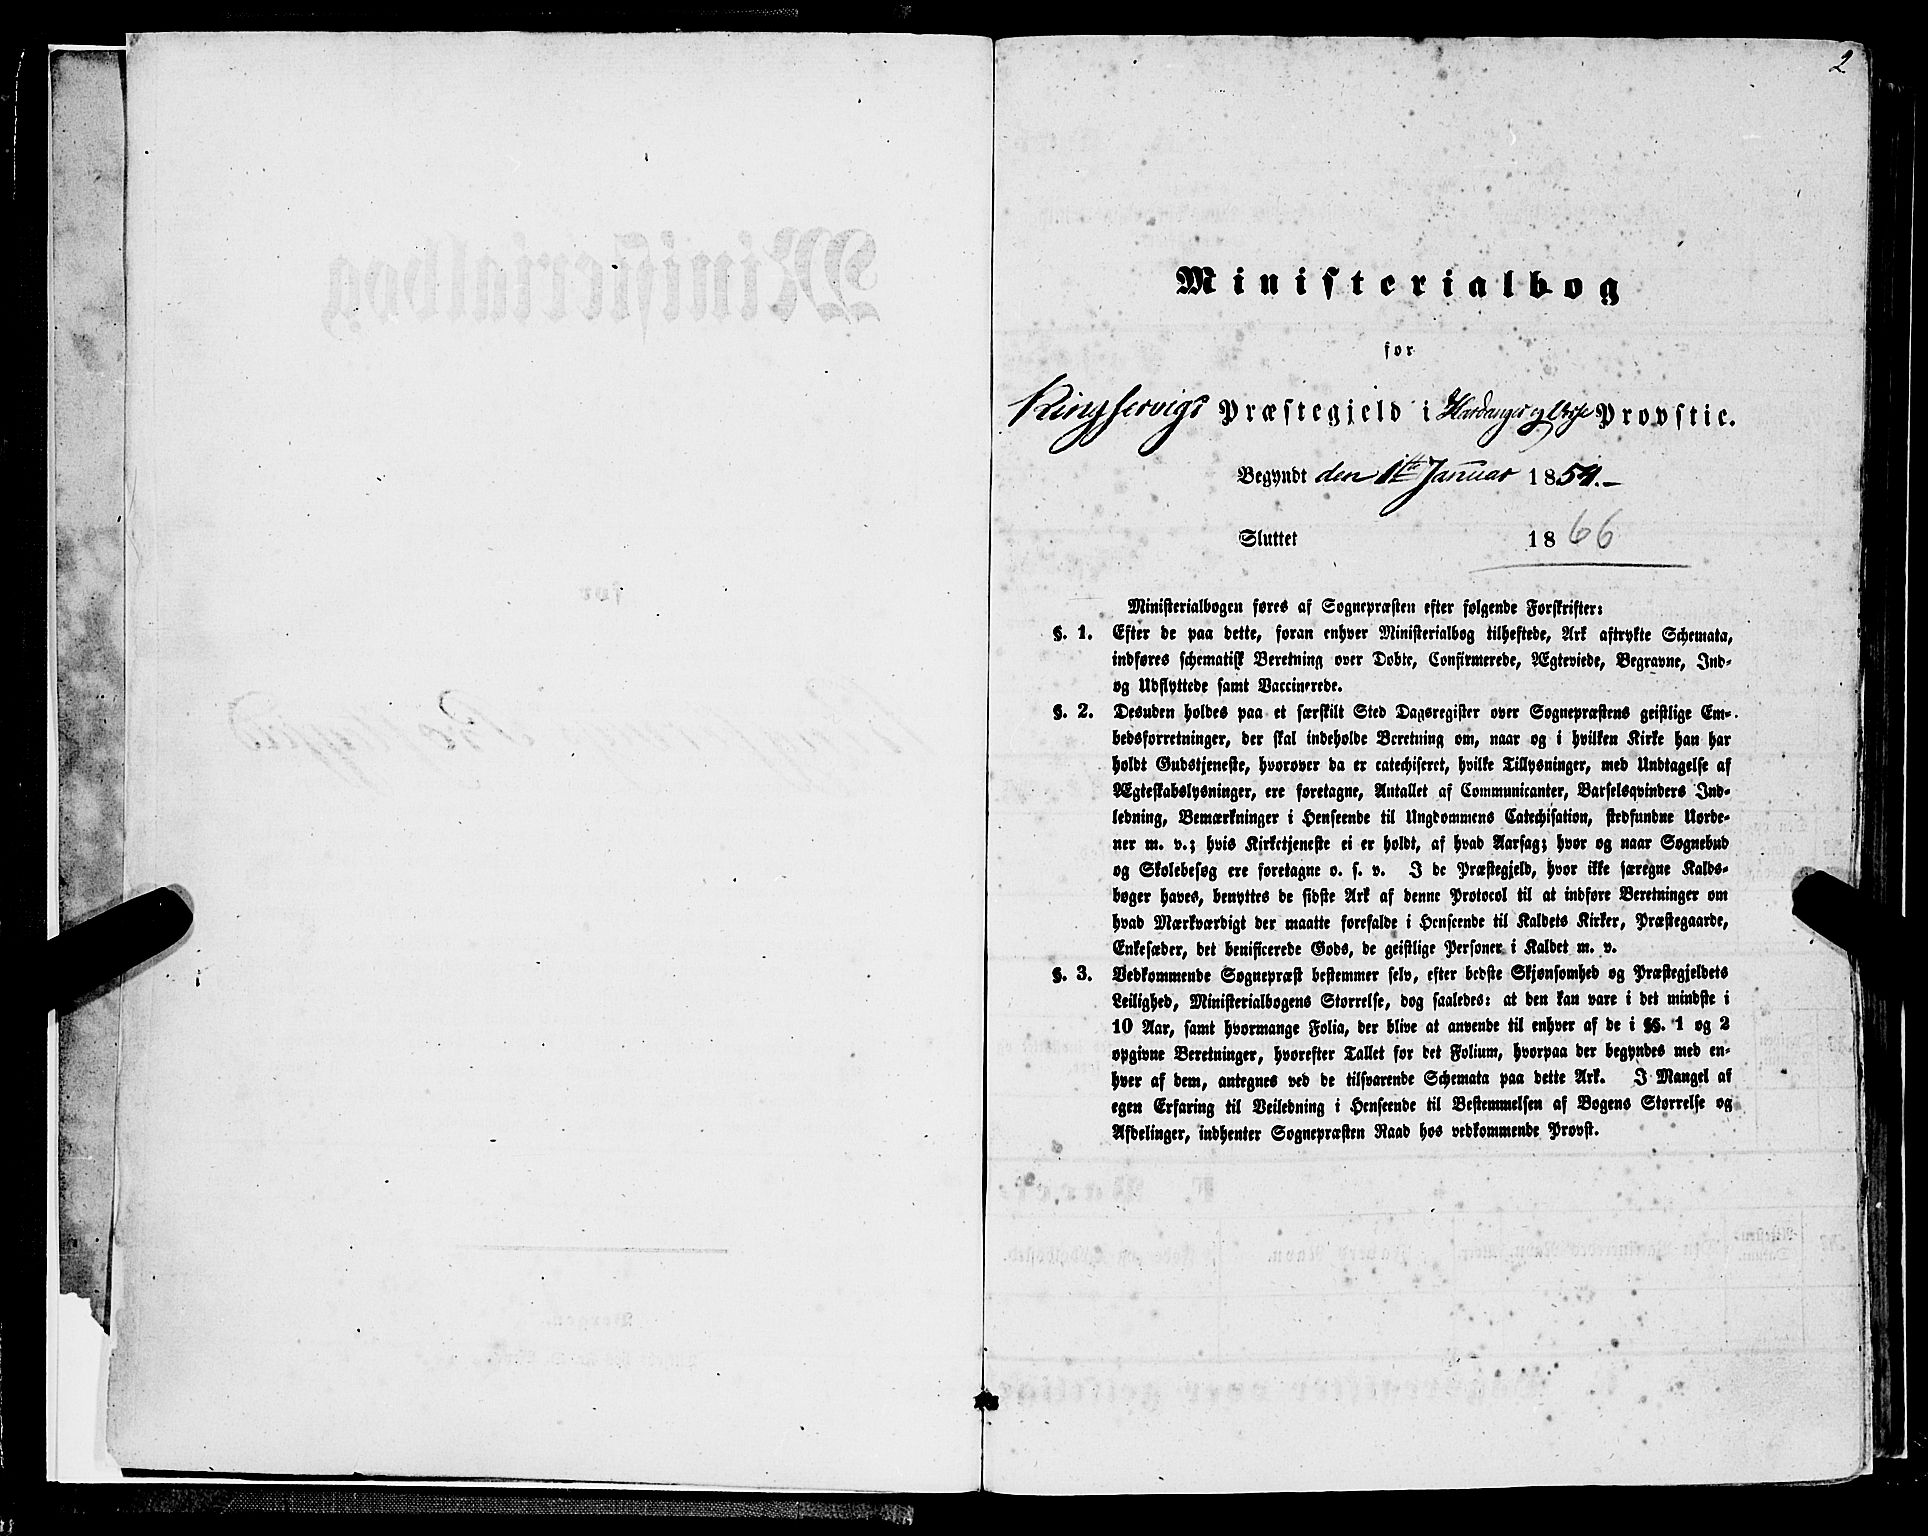 2
Ministerialbog
for
Kingservigs Præstegjeld i Hardanger og Provstie.
Begyndt den 1te Januar 1854.-
Sluttet 1866
Ministerialbogen føres af Sognepræsten efter følgende Forskrifter:
§. 1. Efter de paa dette, foran enhver Ministerialbog tilheftede, Ark aftrykte Schemata,
indføres schematisk Beretning over Døbte, Confirmerede, Ægteviede, Begravne, Ind-
og Udflyttede samt Vaccinerede.
§. 2. Desuden holdes paa et særskilt Sted Dagsregister over Sognepræstens geistlige Em-
bedsforretninger, der skal indeholde Beretning om, naar og i hvilken Kirke han har
holdt Gudstjeneste, hvorover da er catechiseret, hvilke Tillysninger, med Undtagelse af
Ægteskabslysninger, ere foretagne, Antallet af Communicanter, Barselsqvinders Ind-
ledning, Bemærkninger i Henseende til Ungdommens Catechisation, stedfundne Uorde-
ner m. v.; hvis Kirketjeneste ei er holdt, af hvad Aarsag; hvor og naar Sognebud
og Skolebesøg ere foretagne o. s. v. I de Præstegjeld, hvor ikke særegne Kalds-
bøger haves, benyttes de sidste Ark af denne Protocol til at indføre Beretninger om
hvad Mærkværdigt der maatte forefalde i Henseende til Kaldets Kirker, Præstegaarde,
Enkesæder, det benificerede Gods, de geistlige Personer i Kaldet m. v.
§. 3. Vedkommende Sognepræst bestemmer selv, efter bedste Skjønsomhed og Præstegjeldets
Leilighed, Ministerialbogens Størrelse, dog saaledes: at den kan vare i det mindste i
10 Aar, samt hvormange Folia, der blive at anvende til enhver af de i §§. 1 og 2
opgivne Beretninger, hvorefter Tallet for det Folium, hvorpaa der begyndes med en-
hver af dem, antegnes ved de tilsvarende Schemata paa dette Ark. I Mangel af
egen Erfaring til Veiledning i Henseende til Bestemmelsen af Bogens Størrelse og
Afdelinger, indhenter Sognepræsten Raad hos vedkommende Provst.